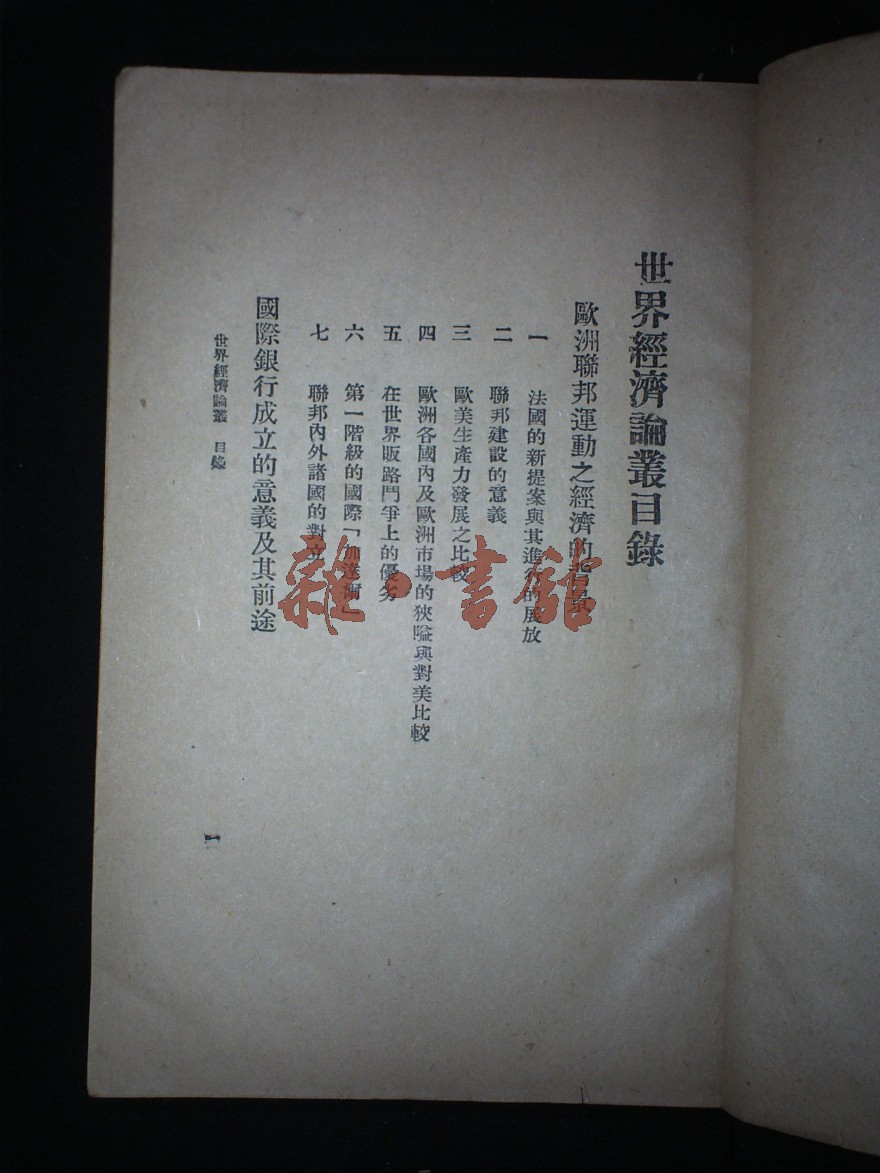 世界經濟論叢目錄
歐洲聯邦運動之經濟的背景
一 法國的新提案與其進行的展放
二 聯邦建設的意義
三 歐美生產力發展之比較
四 歐洲各國內及歐洲市場的狹隘與對美比較
五 在世界販路鬥爭上的優劣
六 第一階級的國際「加達爾」
七 聯邦內外諸國的對立
國際銀行成立的意義及其前途
世界經濟論叢 目錄
一
雜·書館